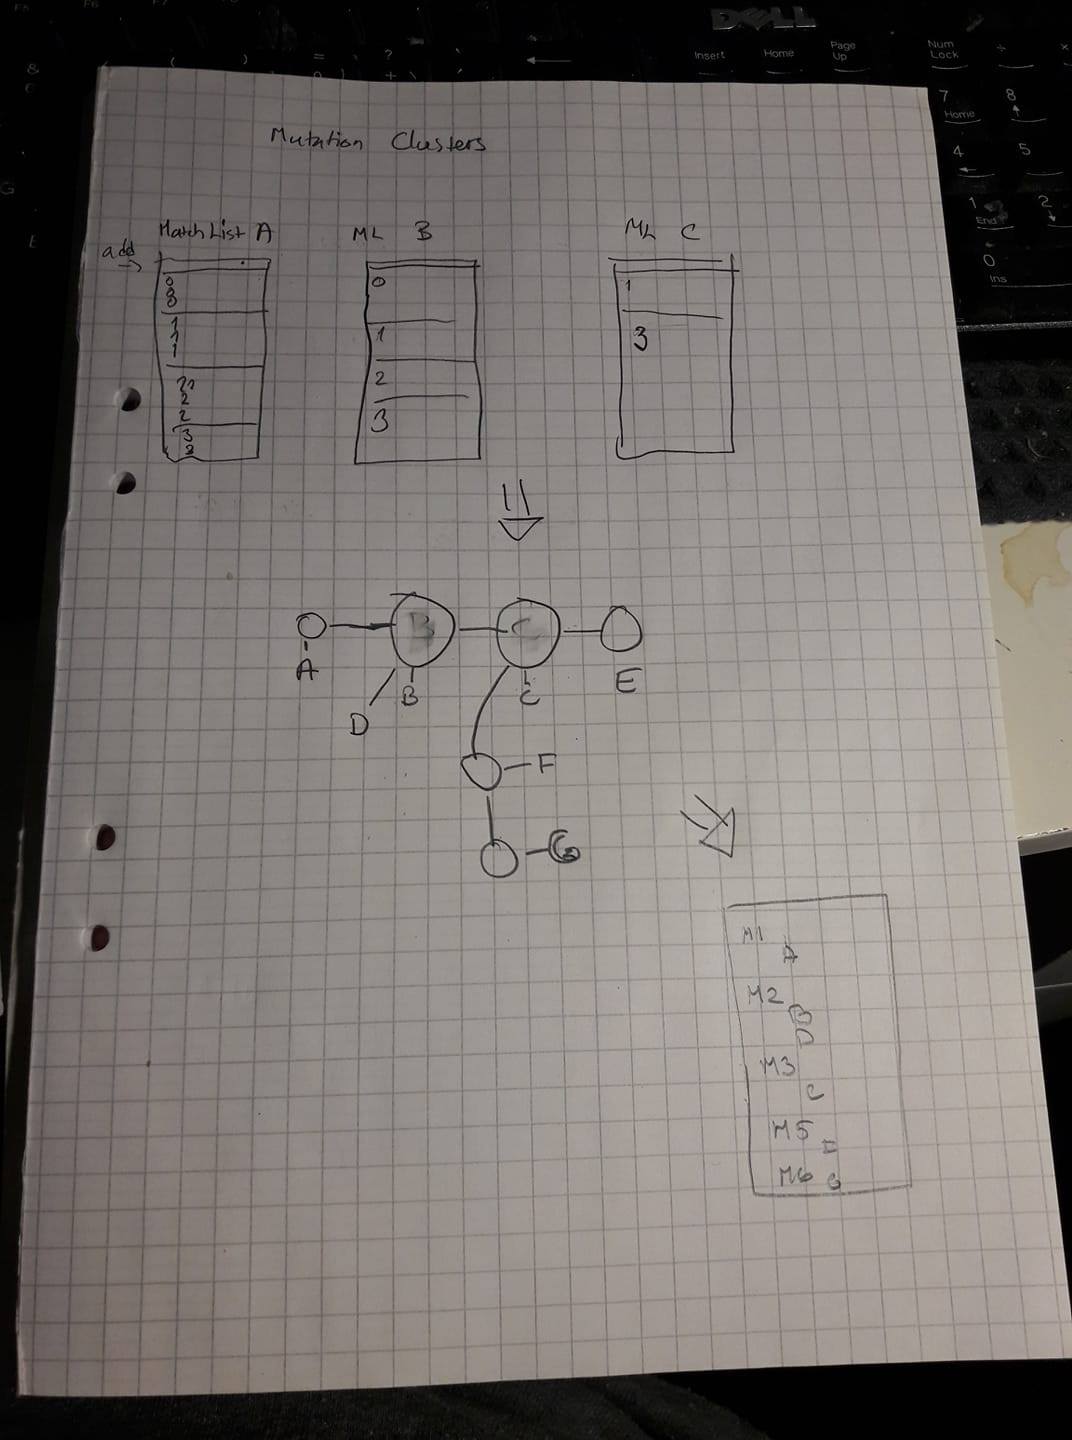 DELL
Insert Home Page Up Num Lock
7 Home 8
4 5
1 End 2
0 Ins
Mutation Clusters
Match List A ML B ML C
add
0
0
0
1
1
1
2
2
2
3
3
0
1
2
3
1
3
B C
A B C E
D
F
G
M1
A
M2
B
D
M3
C
M5
M6 G